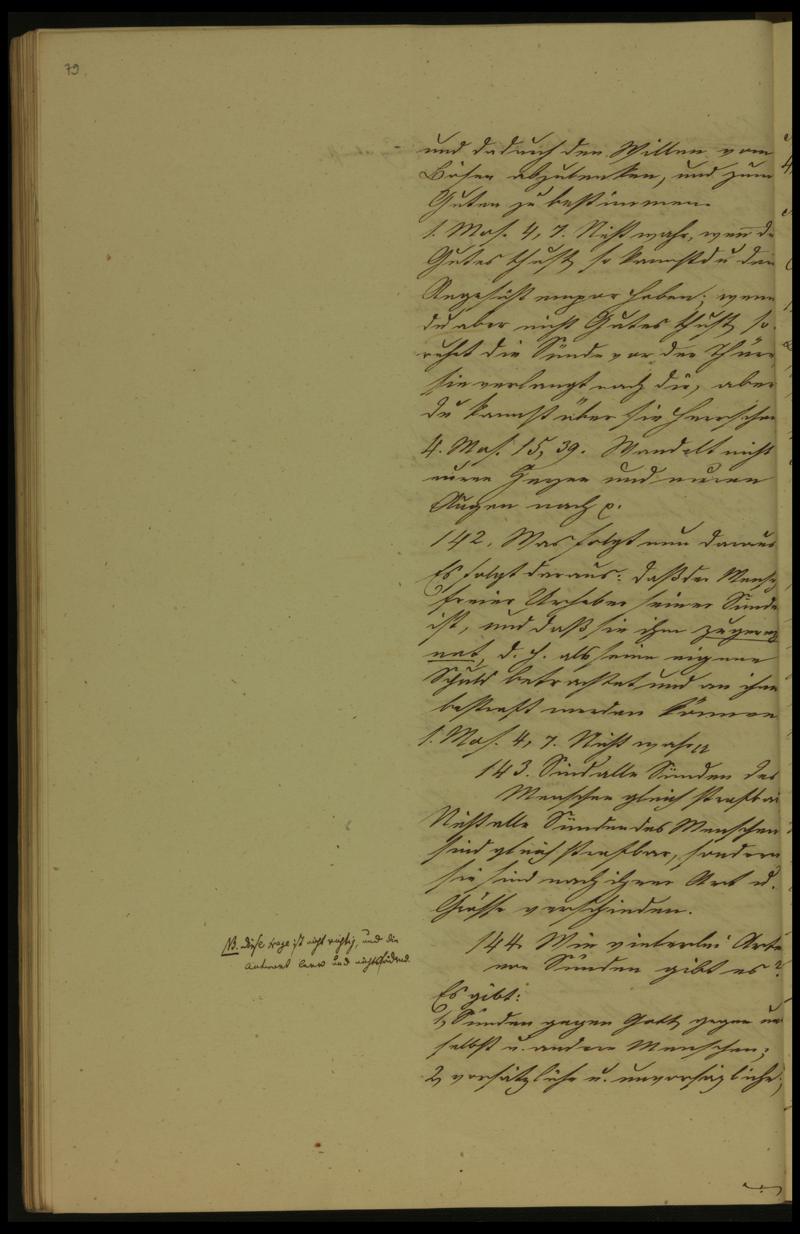 79
und dadurch den Willen vom
Bösen abzulenken, und zum
Guten zu bestimmen.
1. Mos. 4, 7. Nicht wahr, wen̄ du
Gutes thust, so kannst du dein
Angesicht empor heben; wenn
du aber nicht Gutes thust, so
ruht die Sünde vor der Thüre
sie verlangt nach dir, aber
du kannst über sie herrschen
4. Mos. 15, 39. Wandelt nicht
euren Herzen und euren
Augen nach p.
142. Was folgt nun daraus
Es folgt daraus: daß der Mensch
freier Urheber seiner Sünde
ist, und daß sie ihm zugerech
net, d. h. als seine eigene
Schuld betrachtet und an ihm
bestraft werden können
1. Mos. 4, 7. Nicht wahr
143. Sind alle Sünden des
Menschen gleich strafbar
Nicht alle Sünden des Menschen
sind gleich strafbar, sondern
sie sind nach ihrer Art u.
Grösse verschieden.
NB. diese Frage ist nicht richtig, und die
Antwort leer und nichts
144. Wie vielerlei Arten
von Sünden gibt es?
Es gibt:
1, Sünden gegen Gott, gegen uns
selbst u. andere Menschen;
2, vorsätzliche u. unvorsätzliche;